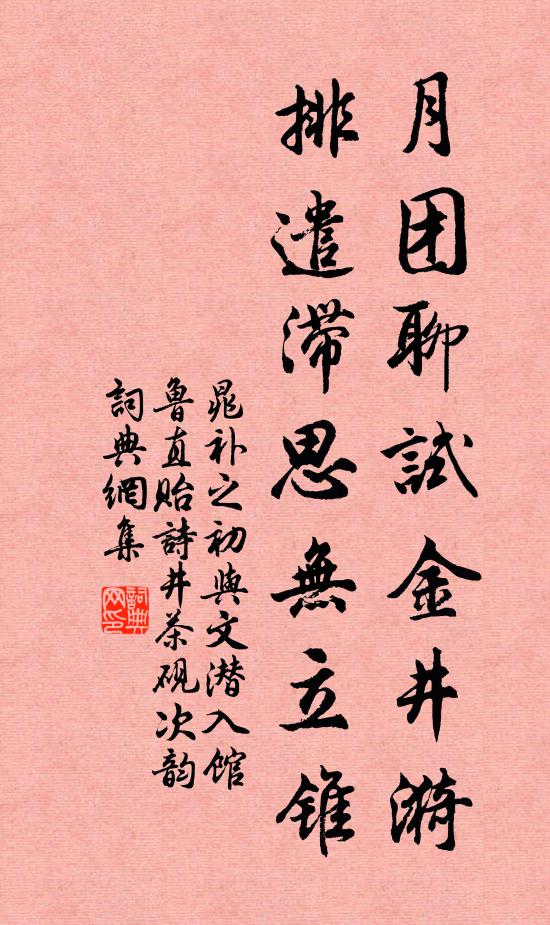 月团聊試金井漪
排遣滞思無立锥
晁补之初與文潜入馆
鲁直贻詩并茶砚次韵
詞典網集
詞典网印